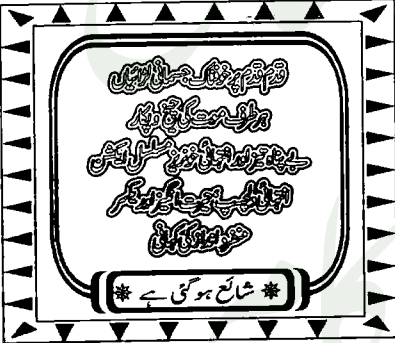 قدم قدم پر خوفناک جسمانی لڑائیاں
ہر طرف موت کی چیخ و پکار
بے پناہ تیز اور انتہائی خونریز مسلسل ایکشن
انتہائی دلچسپ، حیرت انگیز اور یکسر
منفرد انداز کی کہانی
شائع ہو گئی ہے